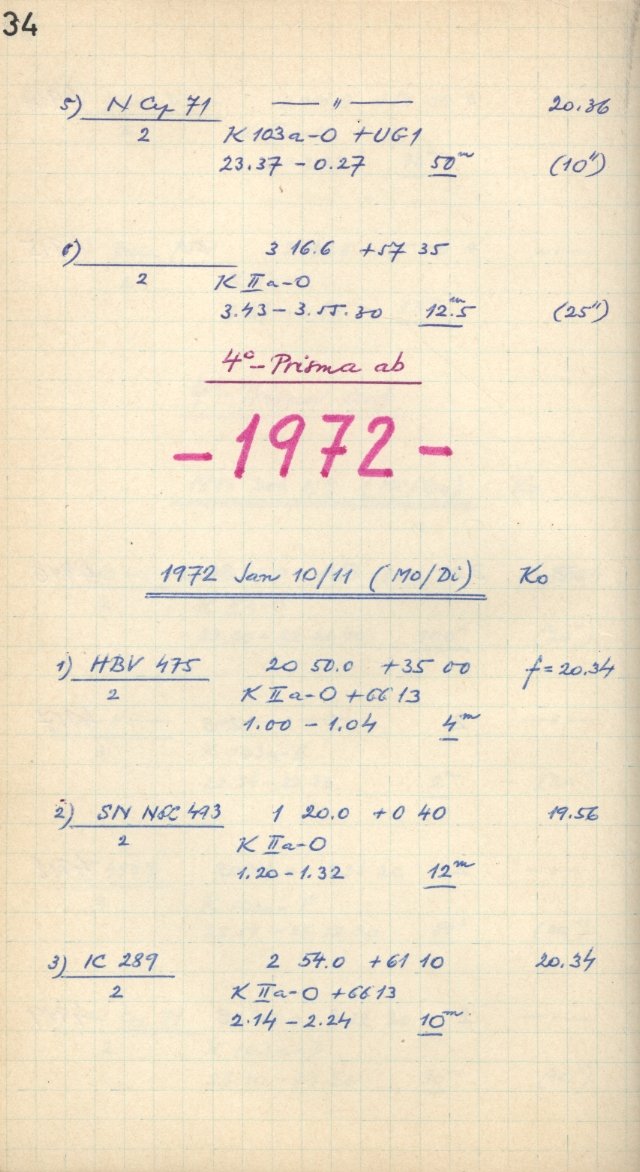 34
5) N Cy 71 — " — 20.36
2 K 103a-O + UG1
23.37 - 0.27 50m (10")
6) 3 16.6 +57 35
2 K IIa-O
3.43 - 3.55.30 12.5m (25")
4°- Prisma ab
- 1972 -
1972 Jan 10/11 (Mo/Di) Ko
1) HBV 475 20 50.0 +35 00 f = 20.34
2 K IIa-O + GG13
1.00 - 1.04 4m
2) SN NGC 493 1 20.0 +0 40 19.56
2 K IIa-O
1.20 - 1.32 12m
3) IC 289 2 54.0 +61 10 20.34
2 K IIa-O + GG13
2.14 - 2.24 10m